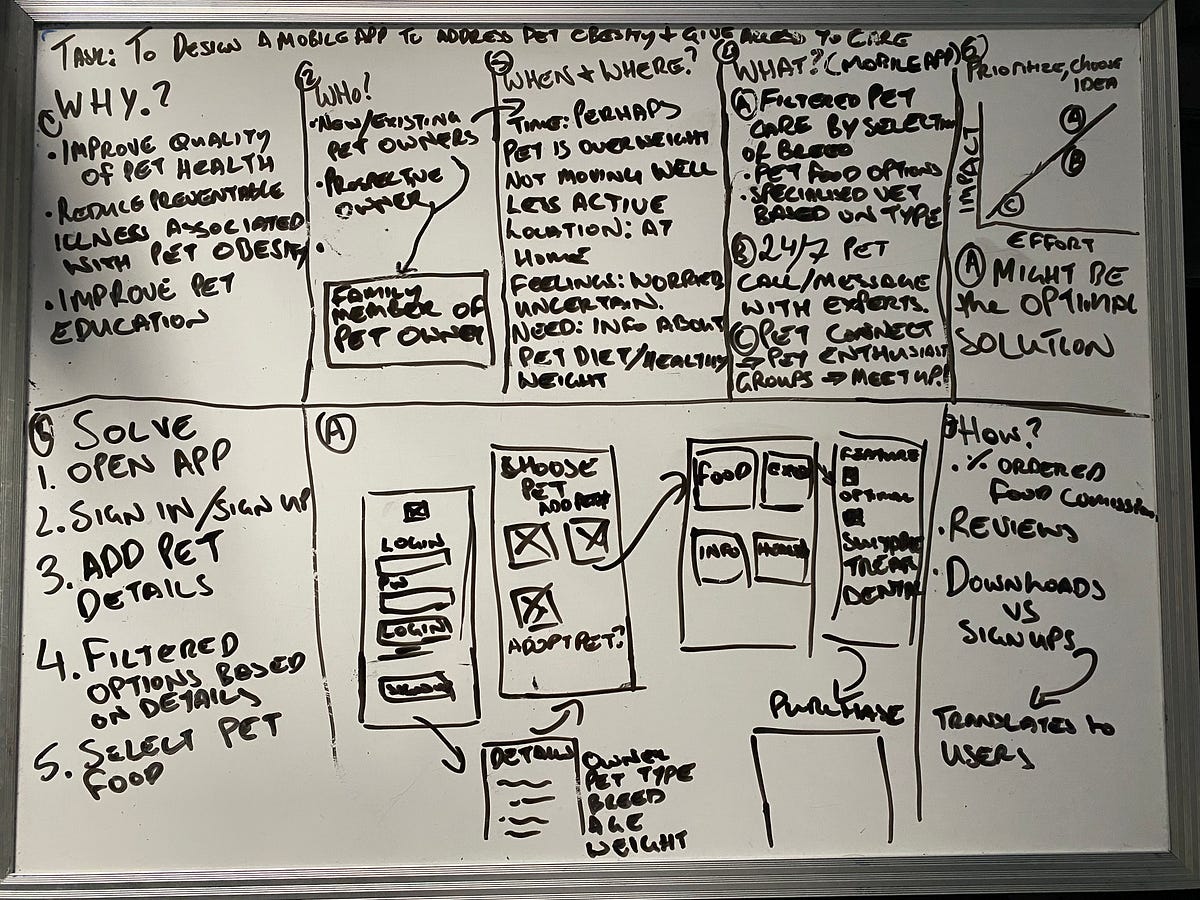 TASK: TO DESIGN A MOBILE APP TO ADDRESS PET OBESITY + GIVE ACCESS TO CARE
WHY?
• IMPROVE QUALITY
OF PET HEALTH
• REDUCE PREVENTABLE
ILLNESS ASSOCIATED
WITH PET OBESITY
• IMPROVE PET
EDUCATION
2
WHO?
• NEW/EXISTING
PET OWNERS
• PROSPECTIVE
OWNER
•
FAMILY
MEMBER OF
PET OWNER
WHEN + WHERE?
TIME: PERHAPS
PET IS OVERWEIGHT
NOT MOVING WELL
LESS ACTIVE
LOCATION: AT
HOME
FEELINGS: WORRIED
UNCERTAIN.
NEED: INFO ABOUT
PET DIET/HEALTHY
WEIGHT
WHAT? (MOBILE APP)
A FILTERED PET
CARE BY SELECTION
OF BREED
• PET FOOD OPTIONS
• SPECIALISED VET
BASED ON TYPE
B 24/7 PET
CALL/MESSAGE
WITH EXPERTS.
C PET CONNECT
→ PET ENTHUSIAST
GROUPS → MEETUP!
PRIORITIZE, CHOOSE
IDEA
IMPACT
A
B
C
EFFORT
A MIGHT BE
the OPTIMAL
SOLUTION
SOLVE
1. OPEN APP
2. SIGN IN/SIGN UP
3. ADD PET
DETAILS
4. FILTERED
OPTIONS BASED
ON DETAILS
5. SELECT PET
FOOD
A
LOGIN
PW
LOGIN
CHOOSE
PET
ADOPT PET?
DETAILS
OWNER
PET TYPE
BREED
AGE
WEIGHT
FOOD
INFO
HEALTH
FEATURE
OPTIMAL
DENTAL
PURCHASE
HOW?
• % ORDERED
FOOD
• REVIEWS
• DOWNLOADS
VS
SIGNUPS
TRANSLATES to
USERS